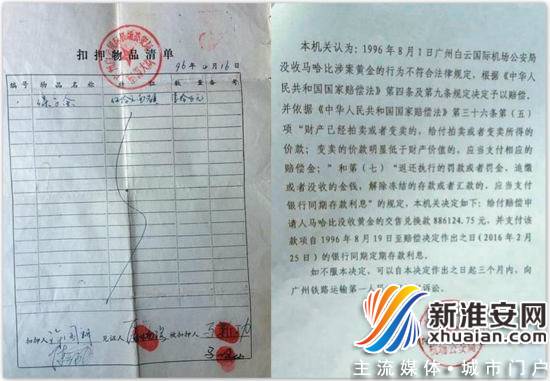 扣押物品清单
96年4月16日
编号
物品名称
数量
备考
扣押人
见证人
被扣押人
本机关认为：1996年8月1日广州白云国际机场公安局
没收马哈比涉案黄金的行为不符合法律规定，根据《中华人
民共和国国家赔偿法》第四条及第九条规定决定予以赔偿，
并依据《中华人民共和国国家赔偿法》第三十六条第（五）
项“财产已经拍卖或者变卖的，给付拍卖或者变卖所得的
价款；变卖的价款明显低于财产价值的，应当支付相应的
赔偿金；”和第（七）“返还执行的罚款或者罚金、追缴
或者没收的金钱，解除冻结的存款或者汇款的，应当支付
银行同期存款利息”的规定，本机关决定如下：给付赔偿申
请人马哈比没收黄金的交售兑换款886124.75元，并支付该
款项自1996年8月19日至赔偿决定作出之日（2016年2月
25日）的银行同期定期存款利息。
如不服本决定，可以自本决定作出之日起三个月内，向
广州铁路运输第一人
诉讼。
机场公安局
新淮安网
xhuaian.com
主流媒体·城市门户